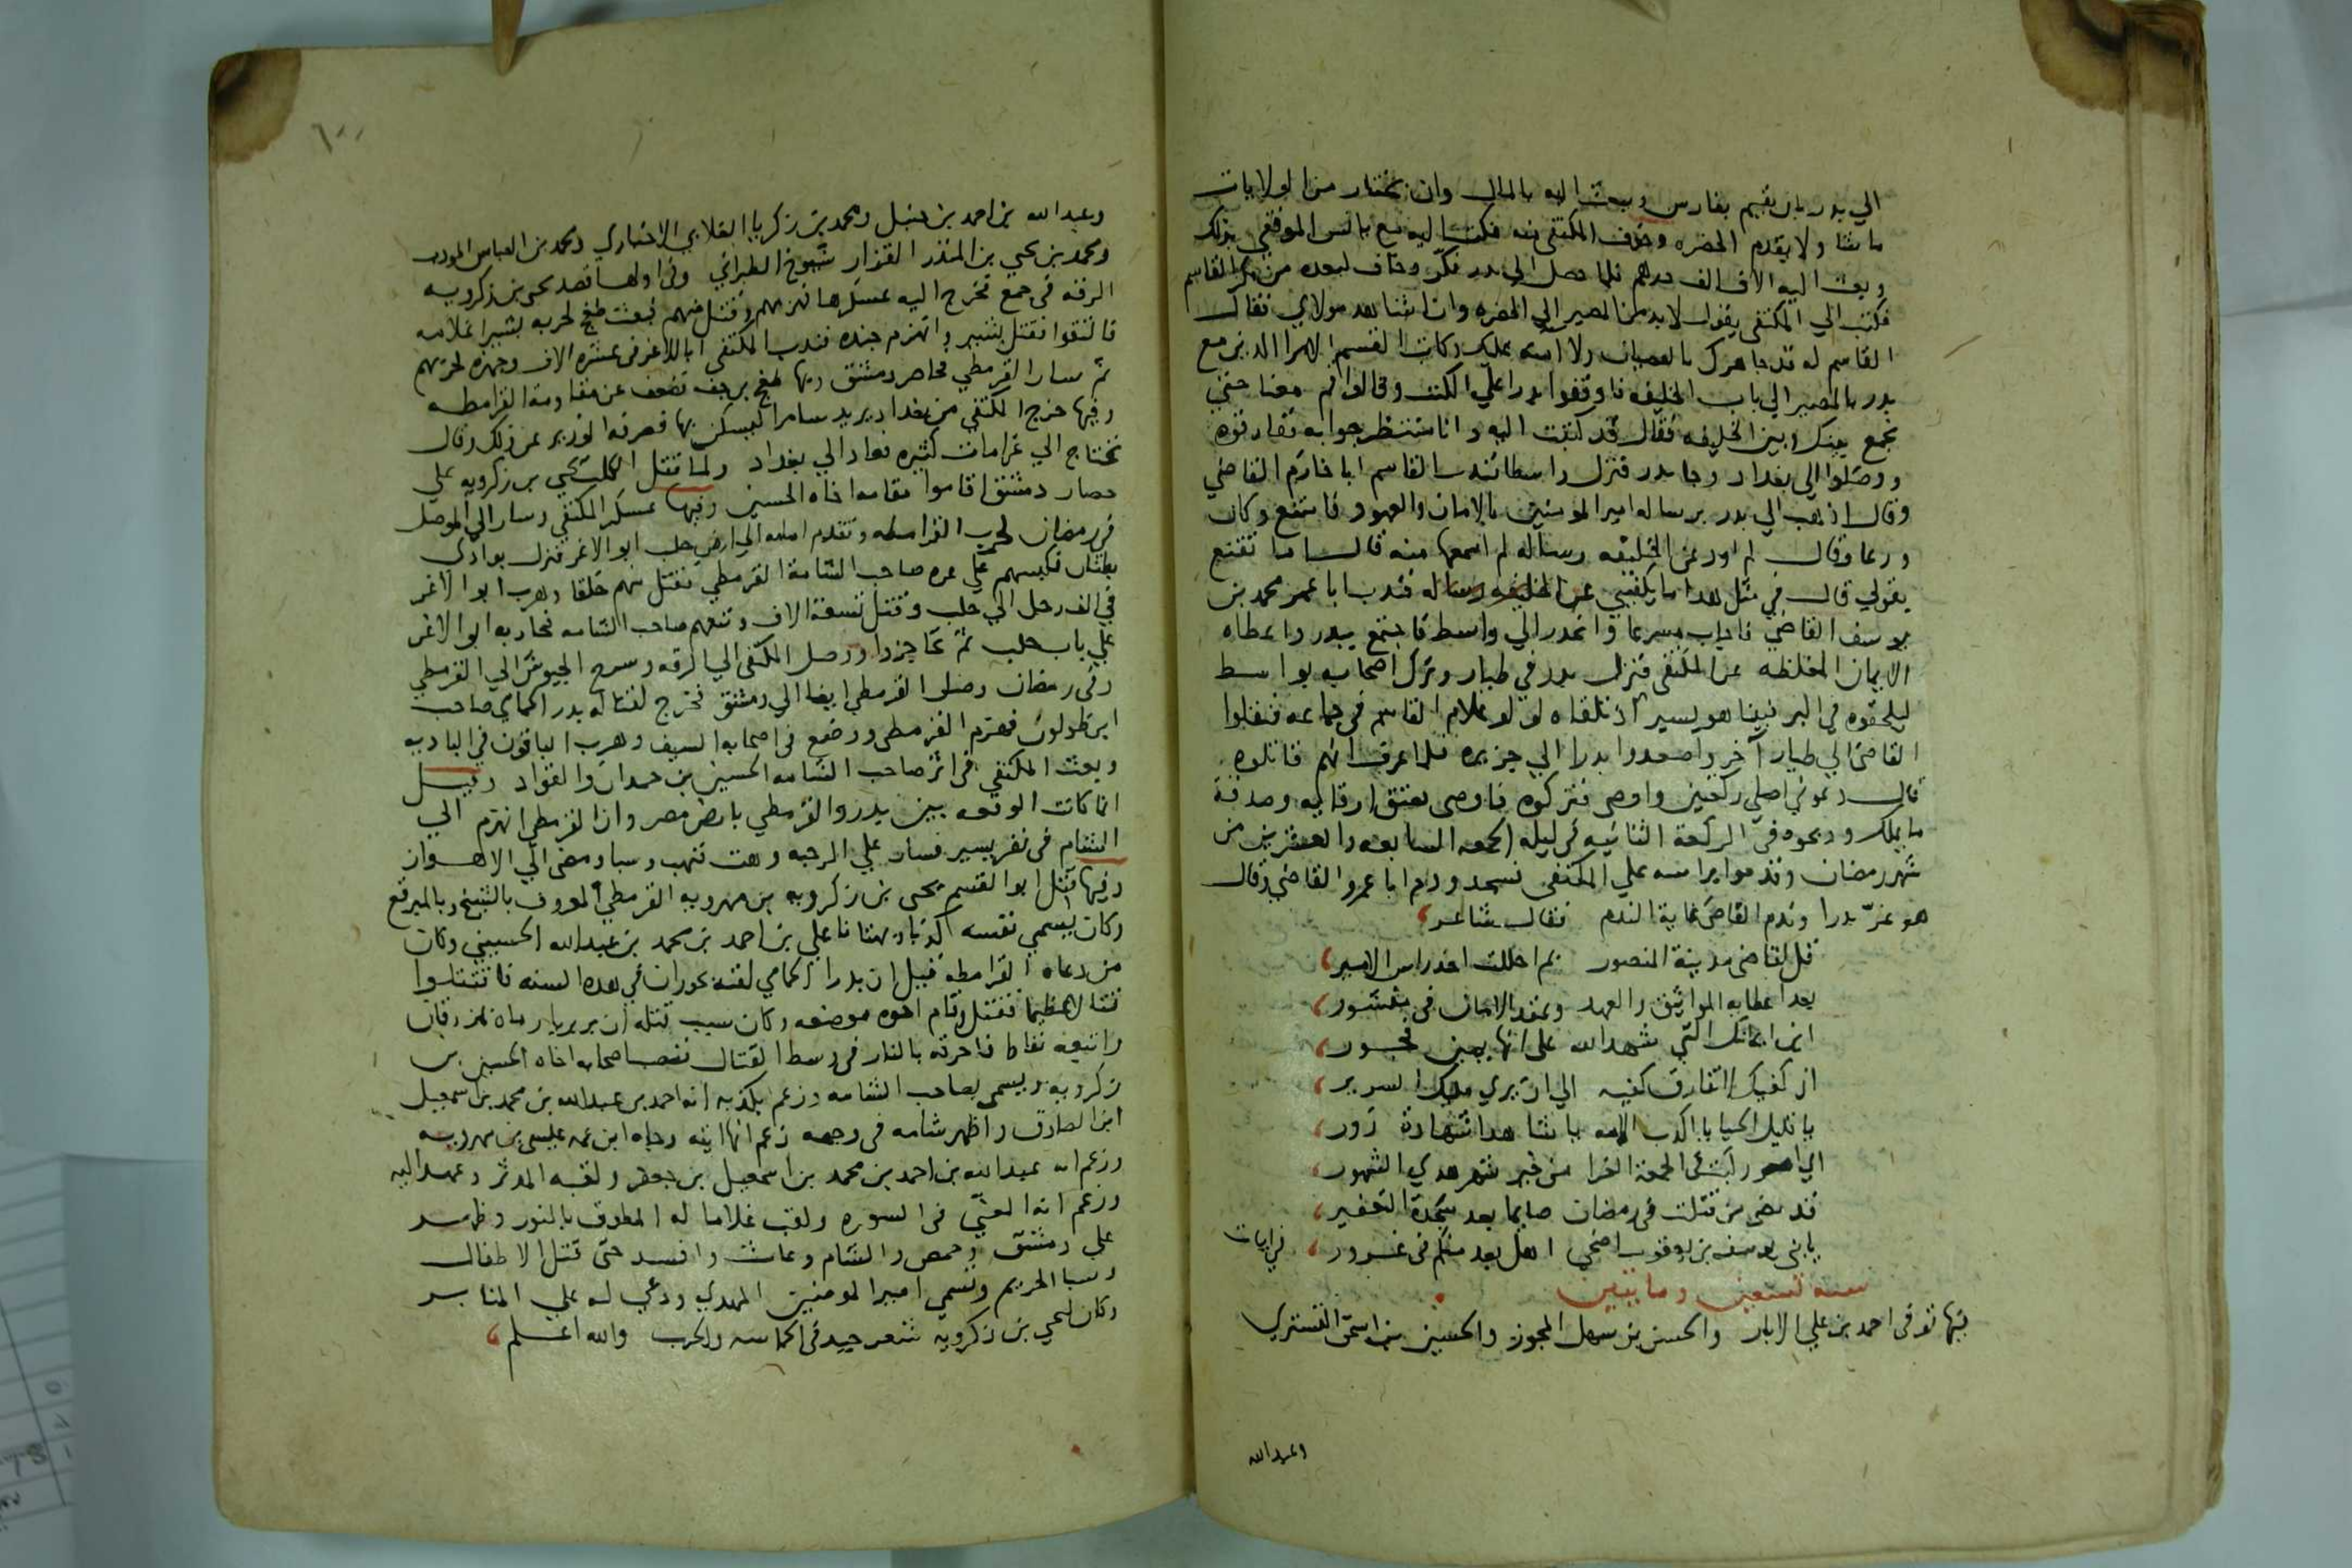 الي بدر بان يقيم بفارس وبعث اليه بالمال وان يختار من الولايات
ما شا ولا يقدم الحضره وخوف المكتفي منه فكتب اليه مع يانس الموفقي بذلك
وبعث اليه الاف الف درهم فلما وصل الي بدر فكر وخاف لبعده من مكر القاسم
فكتب الي المكتفي يقول لابد من المصير الي الحضره وان اشاهد مولاي فقال
القاسم له قد جاهرك بالعصيان ولا امنه عليك وكاتب القسم الامرا الذين مع
بدر بالمصير الي باب الخليفه فاوقفوا بدرا علي الكتب وقالوا قم معنا حتي
نجمع بينك وبين الخليفه فقال قد كتبت اليه وانا منتظر جوابه ففارقوه
ووصلوا الي بغداد وجا بدر فنزل واسطا فندب القاسم ابا خازم القاضي
وقال اذهب الي بدر برساله امير المومنين بالامان والعهود فامتنع وكان
ورعا وقال لم اودعن الخليفه رساله لم اسمعها منه قال اما تقنع
بقولي قال في مثل هذا ما يكفيني عن الخليفه رساله فندب ابا عمر محمد بن
يوسف القاضي فاجاب مسرعا وانحدر الي واسط فاجتمع ببدر واعطاه
الايمان المغلظه عن المكتفي فنزل بدر في طيار وترك اصحابه بواسط
ليلحقوه في البر فبينا هو يسير اذ تلقاه لولو غلام القاسم في جماعه فنقلوا
القاضي الي طيار آخر واصعدوا بدرا الي جزيره فلما عرف انهم قاتلوه
قال دعوني اصلي ركعتين واوصي فتركوه فاوصي بعتق ارقايه وصدقة
ما يملك وذبحوه في الركعة الثانيه في ليلة الجمعه السابعه والعشرين من
شهر رمضان وقدموا براسه علي المكتفي فسجد وذم ابا عمرو القاضي وقال
هو غرّ بدرا وندم القاضي غاية الندم فقال شاعر
قل لقاضي مدينة المنصور بم احللت اخذ راس الامير
بعد اعطايه المواثيق والعهد وعقد الامان في منشور
اين ايمانك التي شهد الله علي انها يمين فجور
ان كفيك لا تفارق كفيه الي ان يري مليك السرير
يا قليل الحيا يا اكذب الامه يا شاهدا شهادة زور
اي امر ركبت في الجمعة الغرا من خير شهر هذي الشهور
قد مضي من قتلت في رمضان صايما بعد سجدة التعفير
يا بني يوسف بن يعقوب اضحي اهل بغداد منكم في غرور في ابيات
سنه تسعين ومايتين
فيها توفي احمد بن علي الابار والحسن بن سهل المجوز والحسين بن اسحق التستري
وعبد الله
٦٠٠
وعبد الله بن احمد بن حنبل ومحمد بن زكريا الغلابي الاخباري ومحمد بن العباس المودب
ومحمد بن يحيي بن المنذر القزاز شيوخ الطبراني وفي اولها قصد يحيي بن زكرويه
الرقه في جمع فخرج اليه عسكرها فهزمهم وقتل منهم فبعث طغج لحربه بشيرا غلامه
فالتقوا فقتل بشير وانهزم جنده فندب المكتفي ابا الاغر في عشرة الاف وجهزه لحربهم
ثم سار القرمطي فحاصر دمشق وبها طغج بن جف فضعف عن مقاومة القرامطه
وفيها خرج المكتفي من بغداد يريد سامرا ليسكن بها فصرفه الوزير عن ذلك وقال
تحتاج الي غرامات كثيره فعاد الي بغداد ولما قتل الكلب يحيي بن زكرويه علي
حصار دمشق اقاموا مقامه اخاه الحسين وفيها عسكر المكتفي وسار الي الموصل
في رمضان لحرب القرامطه وتقدم امامه الي ارض حلب ابو الاغر فنزل بوادي
بطنان فكبسهم علي غره صاحب الشامة القرمطي فقتل منهم خلقا وهرب ابو الاغر
في الف رجل الي حلب وقتل تسعة الاف وتبعهم صاحب الشامه فحاربه ابو الاغر
علي باب حلب ثم تحاجزوا ووصل المكتفي الي الرقه وسرح الجيوش الي القرمطي
وفي رمضان وصل القرمطي ايضا الي دمشق فخرج لقتاله بدر الحمامي صاحب
ابن طولون فهزم القرمطي ووضع في اصحابه السيف وهرب الباقون في الباديه
وبعث المكتفي في اثر صاحب الشامه الحسين بن حمدان والقواد وقيل
انما كانت الوقعه بين بدر والقرمطي بارض مصر وان القرمطي انهزم الي
الشام في نفر يسير فسار علي الرحبه وهيت فنهب وسبا ومضي الي الاهواز
وفيها قتل ابو القسم يحيي بن زكرويه بن مهرويه القرمطي المعروف بالشيخ وبالمبرقع
وكان يسمي نفسه كذبا وبهتانا علي بن احمد بن محمد بن عبد الله الحسيني وكان
من دعاة القرامطه قيل ان بدرا الحمامي لقيه بحوران في هذه السنه فاقتتلوا
قتالا عظيما فقتل وقام اخوه موضعه وكان سبب قتله ان بربريا رماه بمزراق
واتبعه نفاط فاحرقه بالنار في وسط القتال فنصب اصحابه اخاه الحسين بن
زكرويه ويسمي بصاحب الشامه وزعم بكذبه انه احمد بن عبد الله بن محمد بن اسمعيل
ابن الصادق واظهر شامه في وجهه زعم انها ايته وجاه ابن عمه عيسي بن مهرويه
وزعم انه عبد الله بن احمد بن محمد بن اسمعيل بن جعفر ولقبه المدثر وعهد اليه
وزعم انه المعني في السوره ولقب غلاما له المطوق بالنور وظهر
علي دمشق وحمص والشام وعاث وافسد حتي قتل الاطفال
وسبا الحريم وتسمي امير المومنين المهدي ودعي له علي المنابر
وكان ليحيي بن زكرويه شعر جيد في الحماسه والحرب والله اعلم